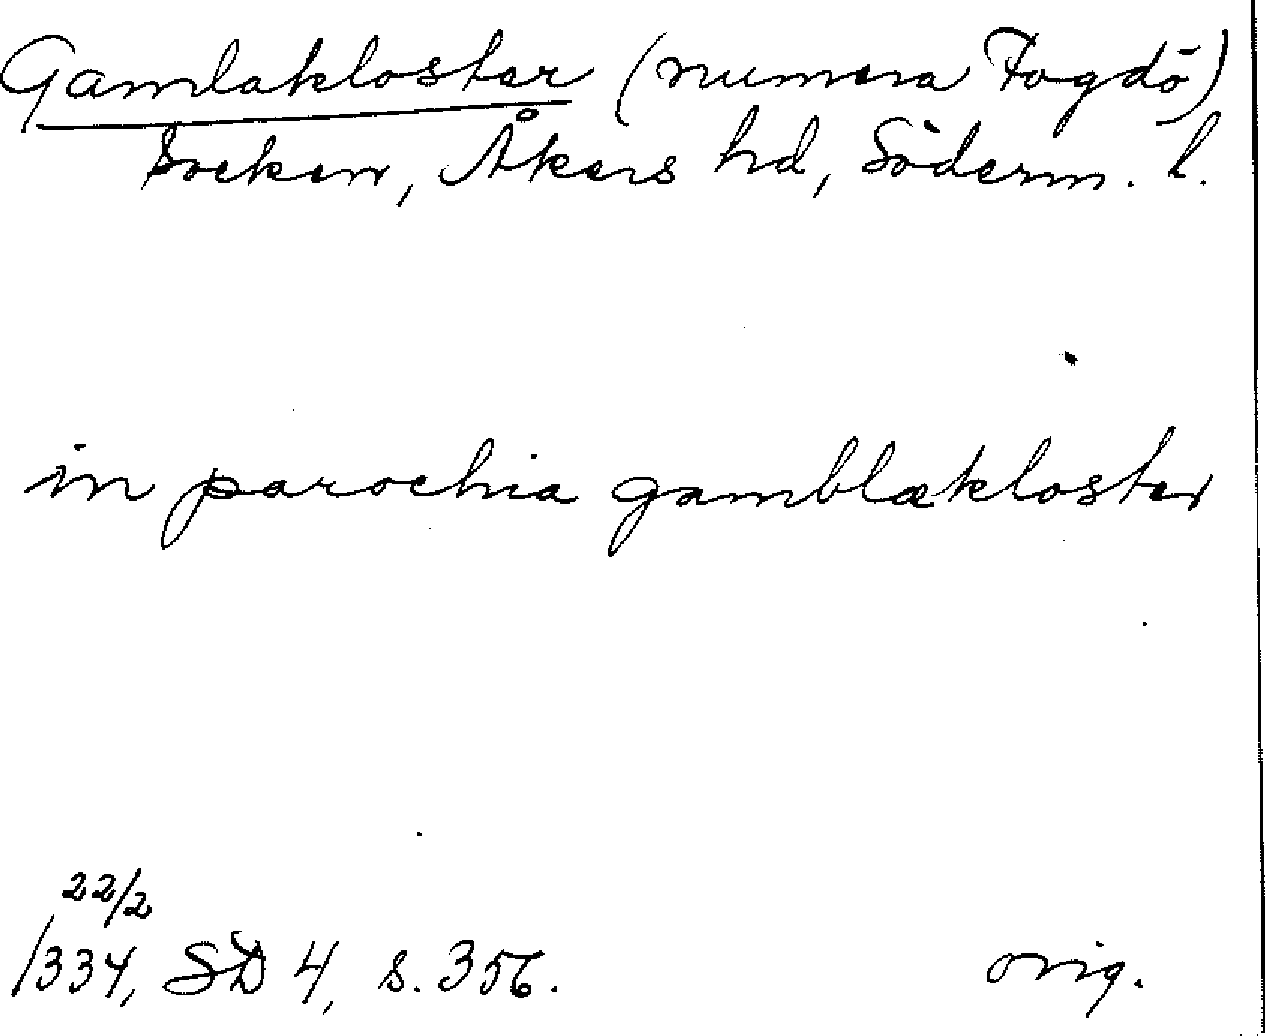 Gamlakloster (numera Fogdö)
Socken, Åkers hd, Söderm. l.
in parochia gamblækloster
22/2
1334, SD 4, s. 356.
orig.